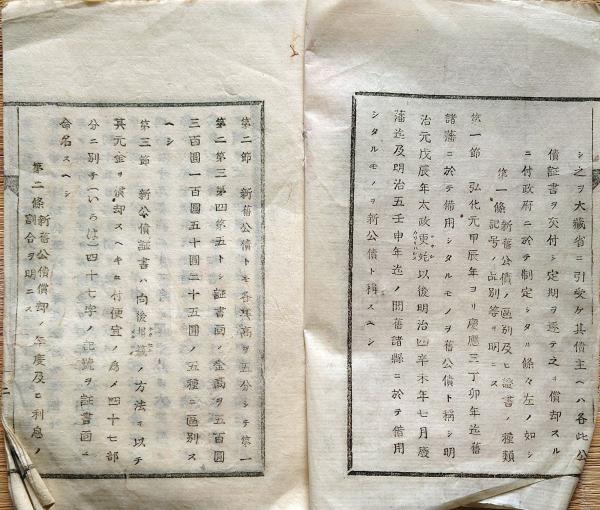 シ之ヲ大藏省ニ引受ケ其債主ヘハ各此公
債証書ヲ交付シ定期ヲ逐テ之ヲ償却スル
ニ付政府ニ於テ制定シタル條々左ノ如シ
第一條 新舊公債ノ區別及ヒ證書ノ種類
記号ノ品別等ヲ明ニス
第一節 弘化元甲辰年ヨリ慶應三丁卯年迄舊
諸藩ニ於テ借用シタルモノヲ舊公債ト稱シ明
治元戊辰年太政更始以後明治四辛未年七月廢
藩迄及明治五壬申年迄ノ間舊諸縣ニ於テ借用
シタルモノヲ新公債ト稱スヘシ
第二節 新舊公債トモ各其高ヲ五分シテ第一
第二第三第四第五トシ証書面ノ金高ヲ五百圓
三百圓一百圓五十圓二十五圓ノ五種ニ區別ス
ヘシ
第三節 新公債証書ハ向後ノ方法ヲ以テ
其元金ヲ償却スヘキニ付便宜ノ為メ四十七部
分ニ別チ(いろは)四十七字ノ記號ヲ証書面ニ
命名スヘシ
第二條 新舊公債償却ノ年度及ヒ利息ノ
割合ヲ明ニス
二